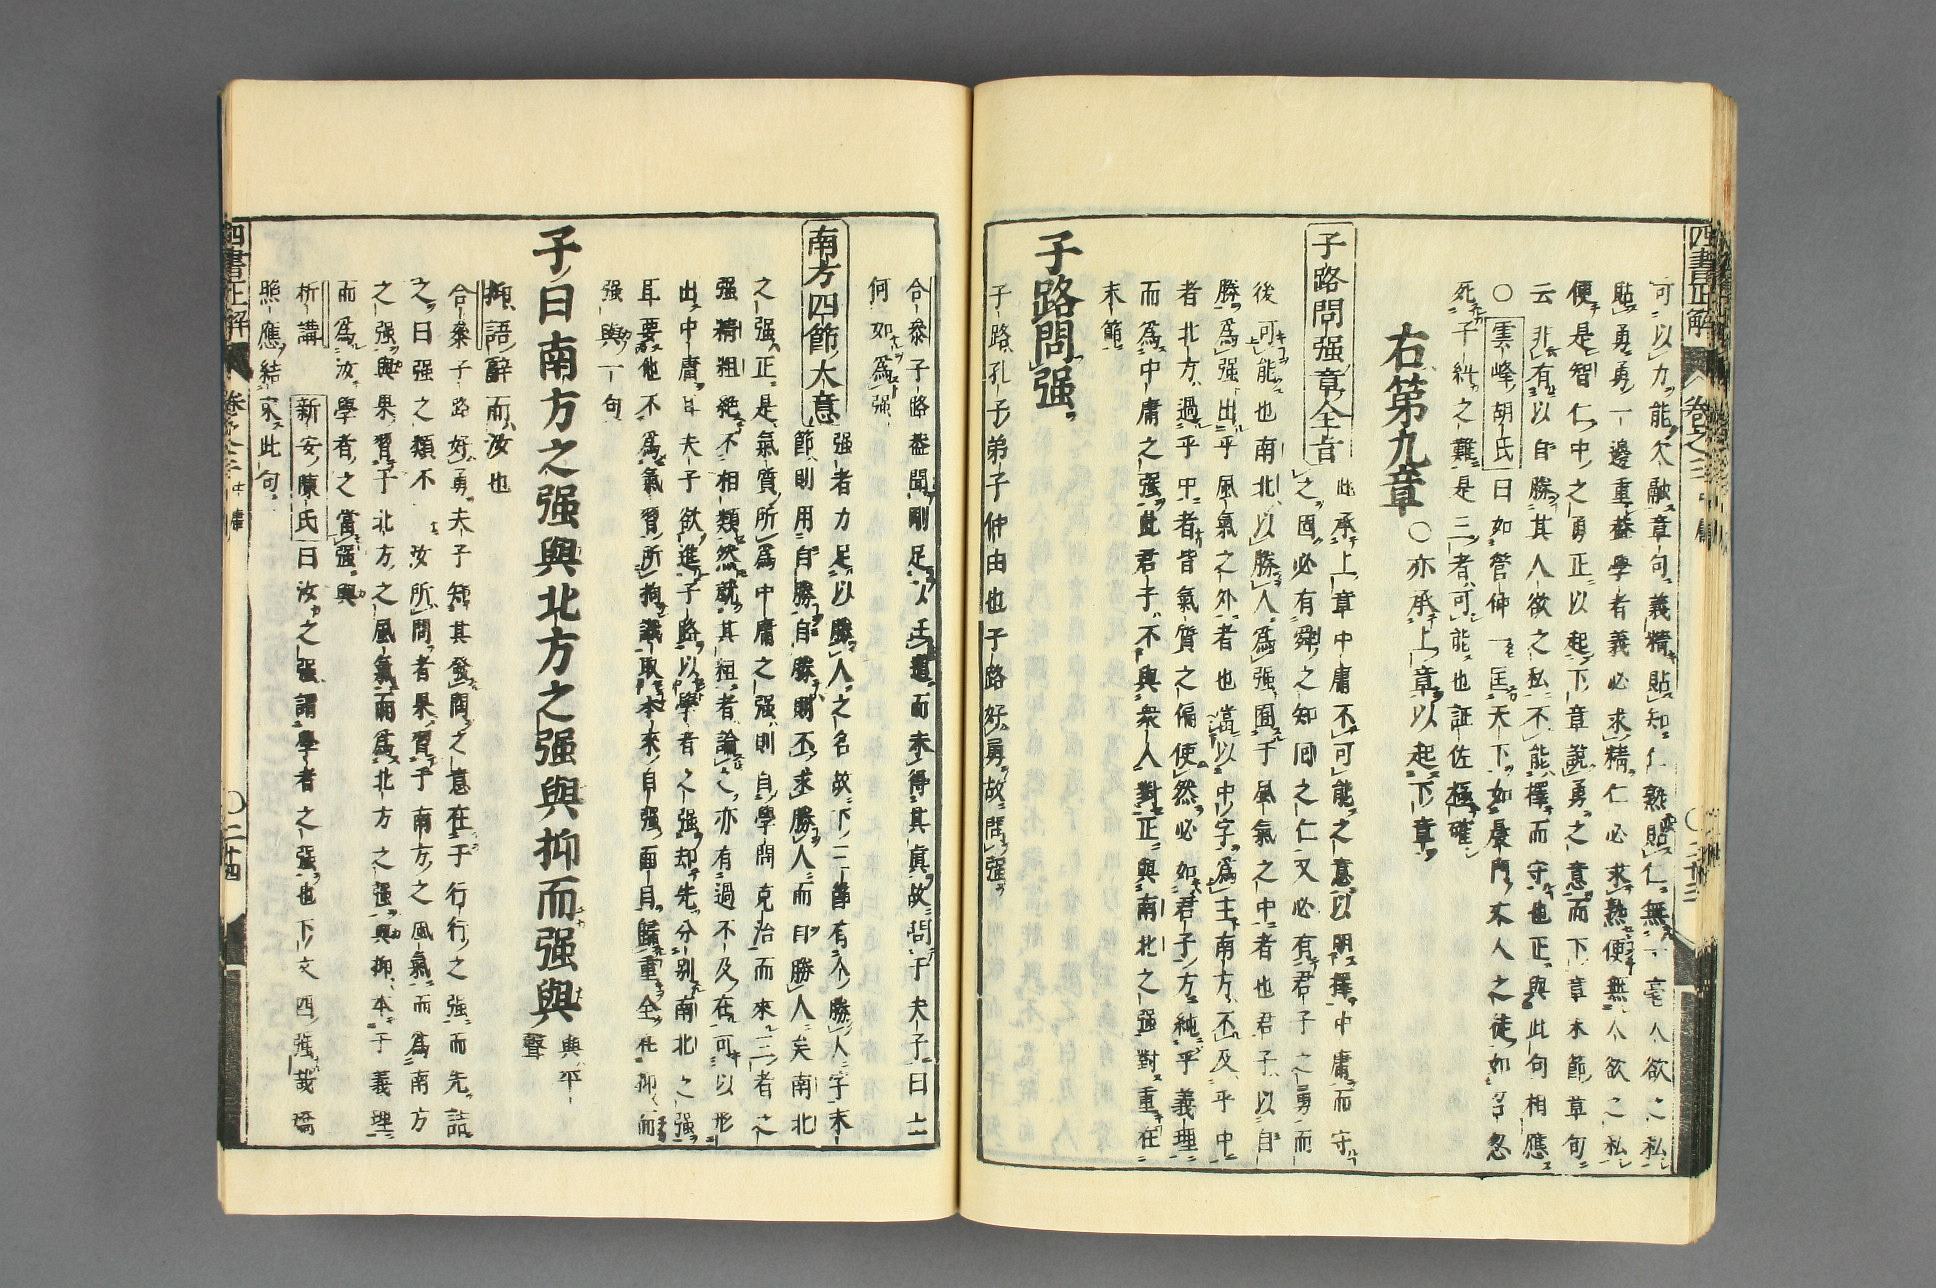 四書正解 卷之三 中庸 〇二十三
可以力能欠融章句義精貼知仁熟貼仁無一毫人欲之私
貼勇勇一邊重蓋學者義必求精仁必求熟便無人欲之私
便是智仁中之勇正以起下章說勇之意而下章末節草句
云非有以自勝其人欲之私不能擇而守也正與此句相應
〇雲峰胡氏曰如管仲一匡天下如晨門丈人之徒如召忽
死子糾之難是三者可能也証佐極確
右第九章〇亦承上章以起下章
子路問强章全旨 此承上章中庸不可能之意以明擇中庸而守
之固必有舜之知囘之仁又必有君子之勇而
後可能也南北以勝人爲强囿于風氣之中者也君子以自
勝爲强出乎風氣之外者也當以中字爲主南方不及乎中
者北方過乎中者皆氣質之偏使然必如君子方純乎義理
而爲中庸之强此君子不與衆人對正與南北之强對重在
末節
子路問强
子路孔子弟子仲由也子路好勇故問强
合叅子路蓋聞剛足以任道而未得其眞故問于夫子曰
何如爲强
南方四節大意 强者力足以勝人之名故下二節有个勝人字末
節則用自勝自勝則不求勝人而卽勝人矣南北
之强正是氣質所爲中庸之强則自學問克治而來二者之
强精粗絶不相類然就其粗者論之亦有過不及在可以形
出中庸耳夫子欲進子路以學者之强却先分别南北之强
耳要他不爲氣習所拘識取本來自强面目歸重全在抑而
强與一句
子曰南方之强與北方之强與抑而强與 與平聲
抑語辭而汝也
合叅子路好勇夫子知其發問之意在于行行之强而先詰
之曰强之類不 汝所問者果習于南方之風氣而爲南方
之强與果習于北方之風氣而爲北方之强與抑本于義理
而爲汝學者之當强與
析講 新安陳氏曰汝之强謂學者之强也下文四强哉矯
照應結束此句
四書正解 卷之三 中庸 〇二十四